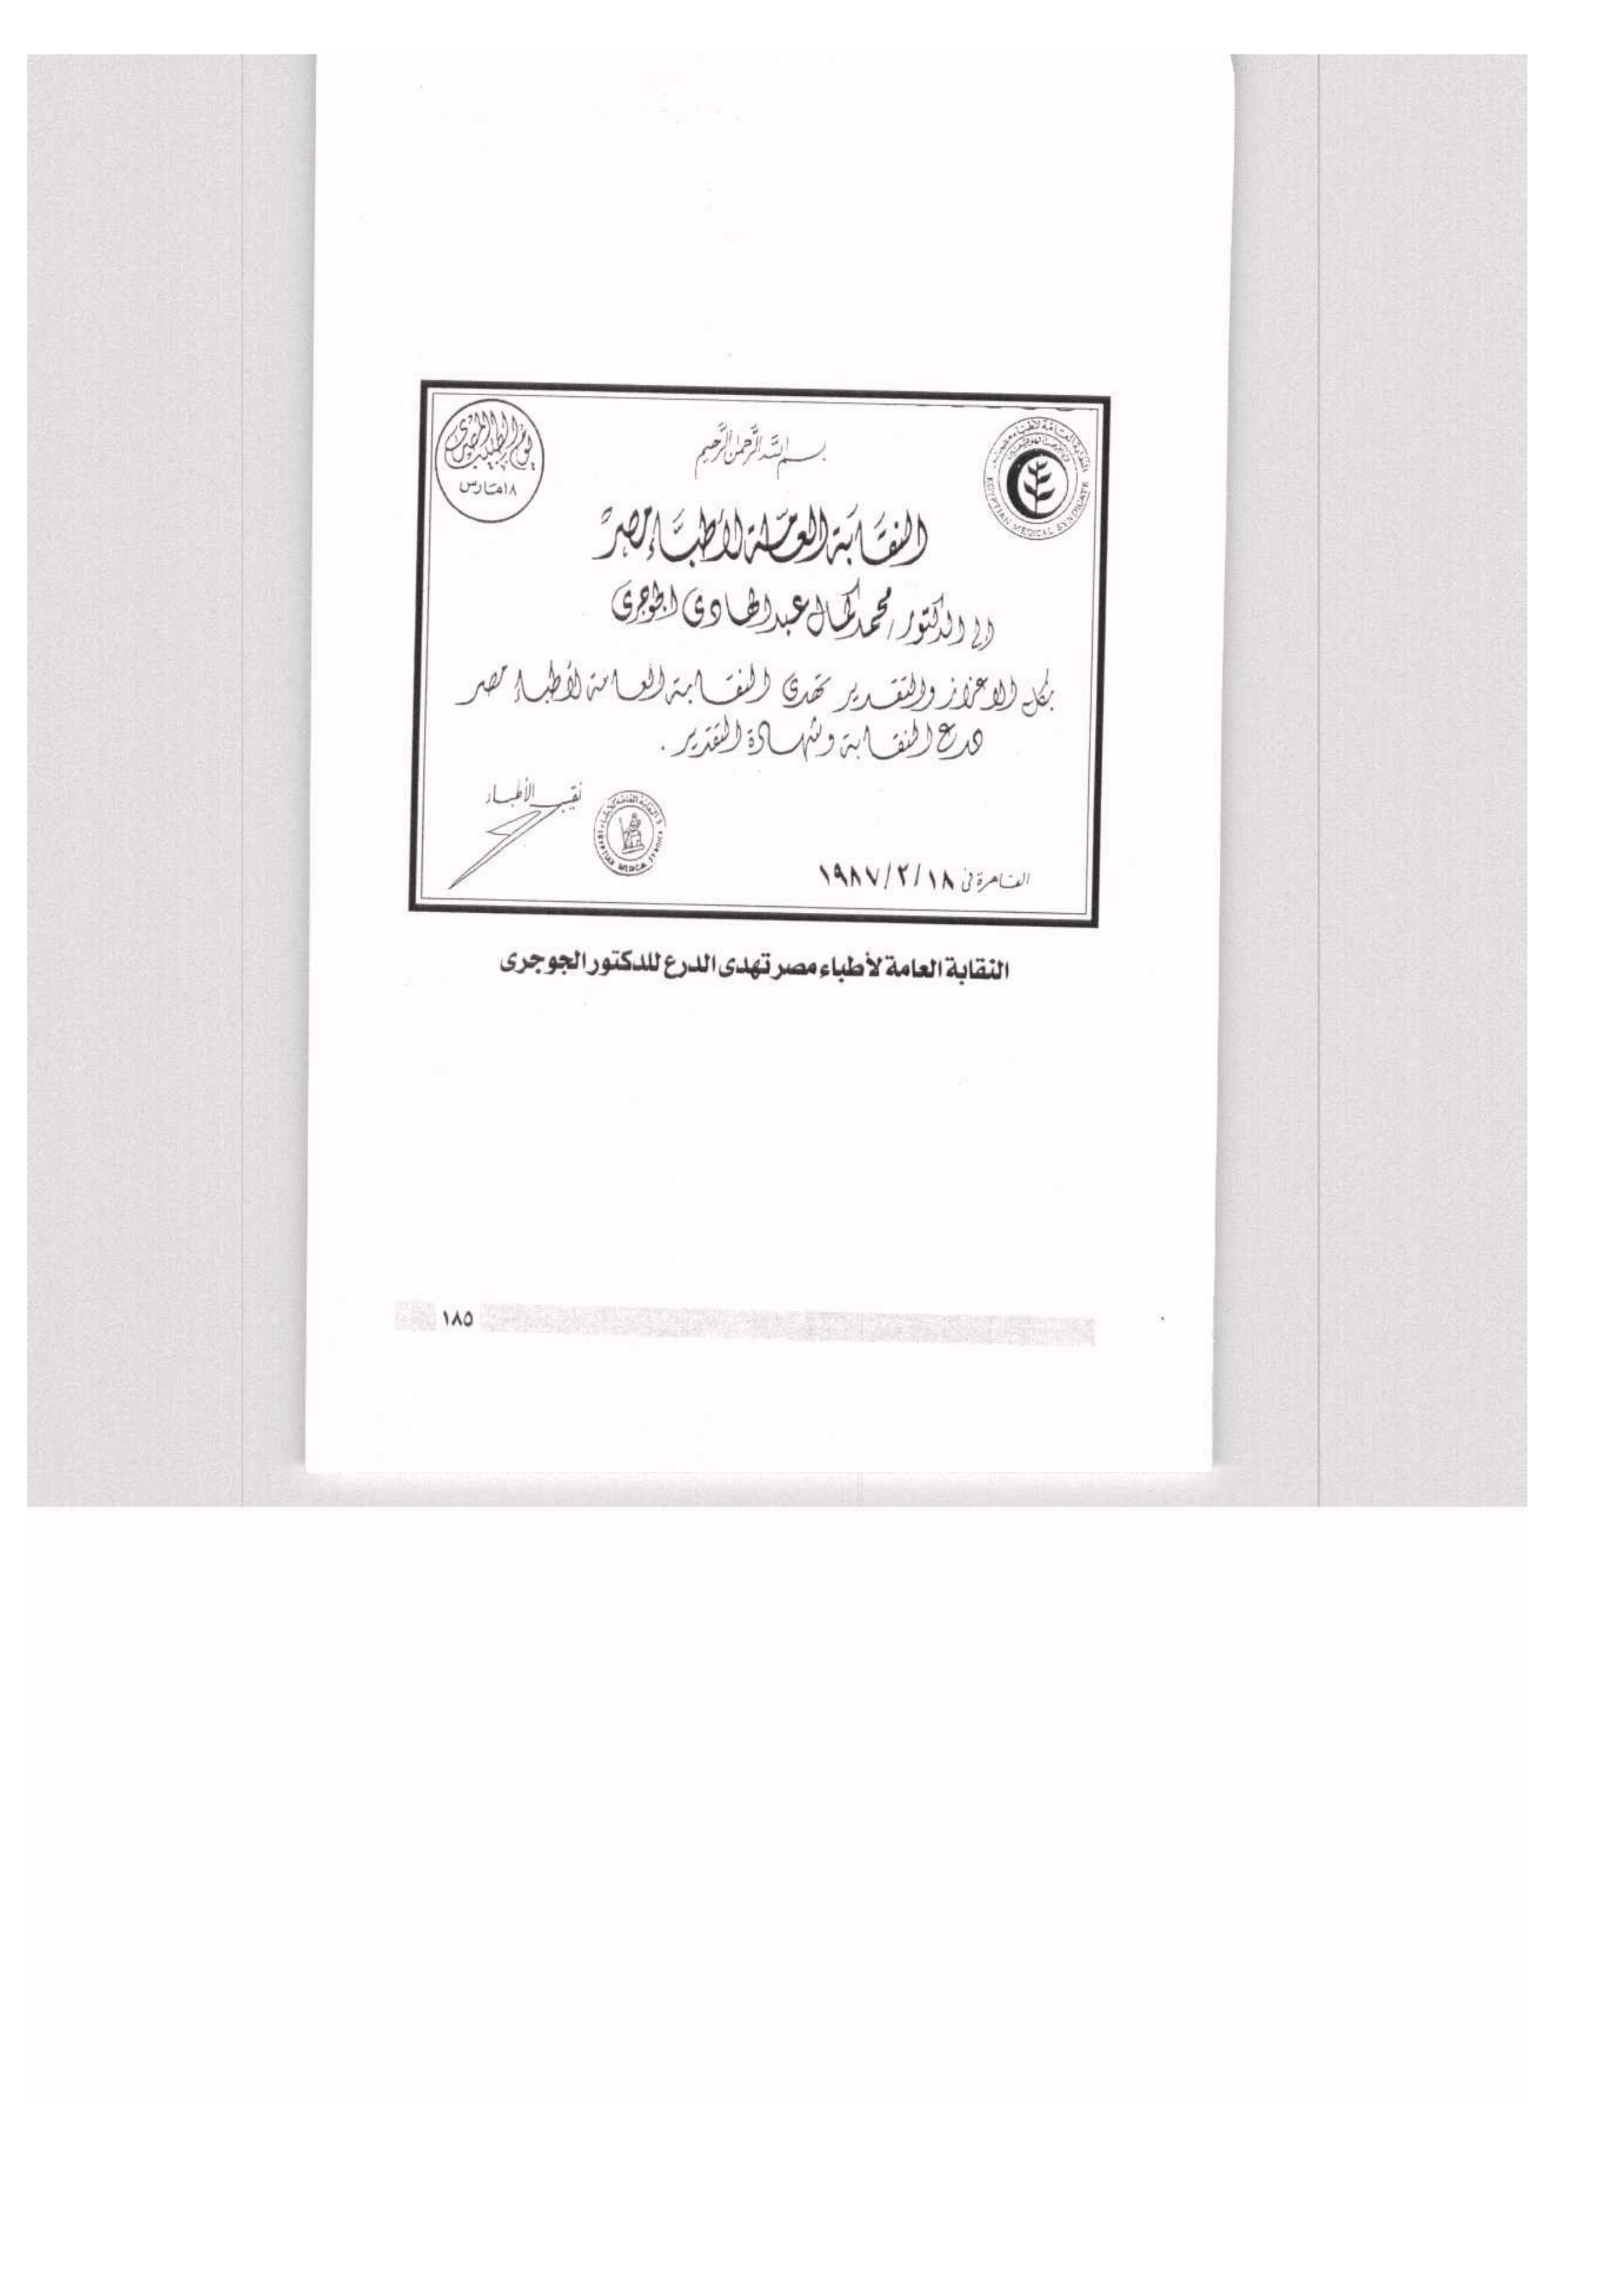 يوم الطبيب المصرى
١٨ مارس
بسم الله الرحمن الرحيم
النقابة العامة لأطباء مصر
EGYPTIAN MEDICAL SYNDICATE
النقابة العامة لأطباء مصر
إلى الدكتور/ محمد كمال عبد الهادى الجوجرى
بكل الاعزاز والتقدير تهدى النقابة العامة لأطباء مصر
درع النقابة وشهادة التقدير .
نقيب الأطباء
القاهرة فى ١٨/٣/١٩٨٧
النقابة العامة لأطباء مصر تهدى الدرع للدكتور الجوجرى
١٨٥